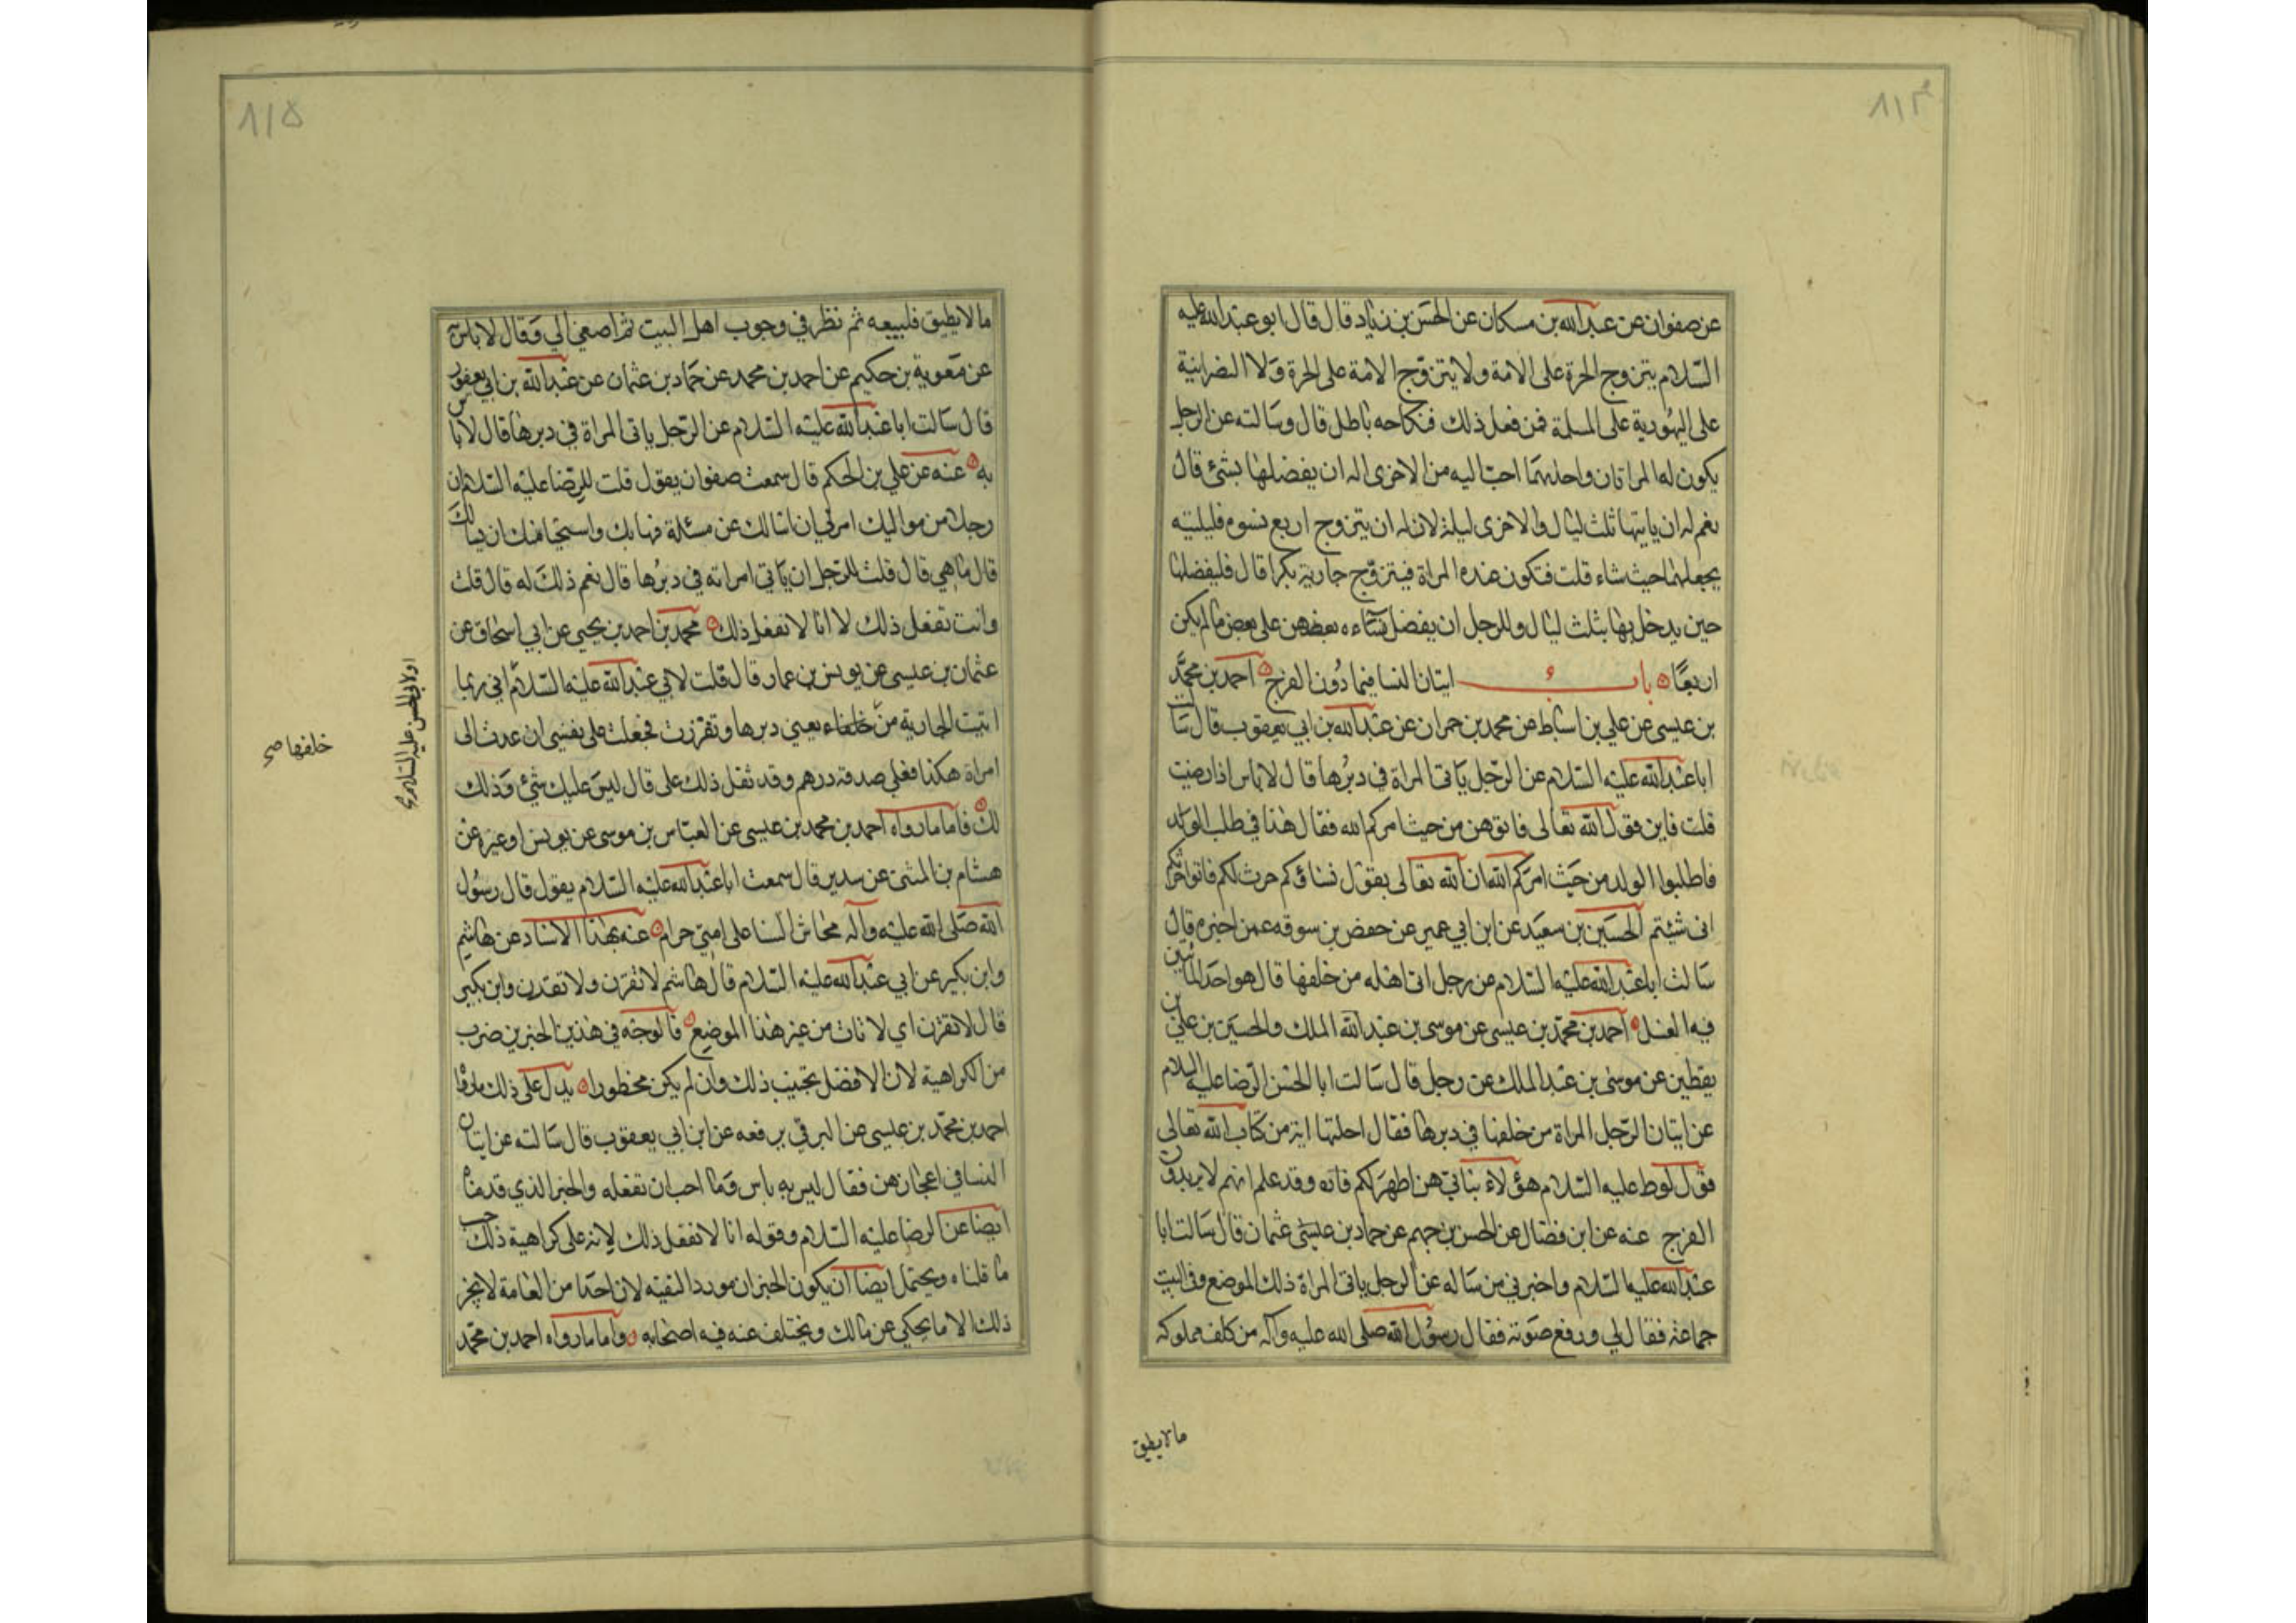 ٨١٤
عن صفوان عن عبد الله بن مسكان عن الحسن بن زياد قال قال ابو عبد الله عليه
السلام يتزوج الحرة على الامة ولا يتزوج الامة على الحرة ولا النصرانية
على اليهودية على المسلمة فمن فعل ذلك فنكاحه باطل قال وسالته عن الرجل
يكون له المراتان واحدهما احب اليه من الاخرى اله ان يفضلها بشئ قال
نعم له ان ياتيها ثلث ليال والاخرى ليلة لان له ان يتزوج اربع نسوه فليلتيه
يجعلهما حيث شاء قلت فتكون عنده المراة فيتزوج جارية بكرا قال فليفضلها
حين يدخل بها بثلث ليال وللرجل ان يفضل نساءه بعضهن على بعض ما لم يكن
اربعا باب اتيان النسا فيما دون الفرج احمد بن محمد
بن عيسى عن علي بن اسباط عن محمد بن حمران عن عبد الله بن ابي يعقوب قال سالت
ابا عبد الله عليه السلام عن الرجل ياتى المراة في دبرها قال لا باس اذا رضيت
قلت فاين قول الله تعالى فاتوهن من حيث امركم الله فقال هذا في طلب الولد
فاطلبوا الولد من حيث امركم الله ان الله تعالى يقول نساؤكم حرث لكم فاتوا حرثكم
انى شئتم الحسين بن سعيد عن ابن ابي عمير عن حفص بن سوقه عمن اخبره قال
سالت ابا عبد الله عليه السلام عن رجل اتى اهله من خلفها قال هو احد الماتيين
فيه الغسل احمد بن محمد بن عيسى عن موسى بن عبد الله الملك والحسين بن علي بن
يقطين عن موسى بن عبد الملك عن رجل قال سالت ابا الحسن الرضا عليه السلام
عن اتيان الرجل المراة من خلفها في دبرها فقال احلتها اية من كتاب الله تعالى
قول لوط عليه السلام هؤلاء بناتي هن اطهر لكم فانه وقد علم انهم لا يريدون
الفرج عنه عن ابن فضال عن الحسن بن جهم عن حماد بن عثمان قال سالت ابا
عبد الله عليه السلام واخبرني من ساله عن الرجل ياتى المراة ذلك الموضع وفي البيت
جماعة فقال لي ورفع صوته فقال رسول الله صلى الله عليه وآله من كلف مملوكه
ما لا يطيق
٨١٥
ما لا يطيق فليبعه ثم نظر في وجوب اهل البيت ثم اصغى الي وقال لا باس به
عن معوية بن حكيم عن احمد بن محمد عن حماد بن عثمان عن عبد الله بن ابي يعفور
قال سالت ابا عبد الله عليه السلام عن الرجل ياتى المراة في دبرها قال لا باس
به عنه عن علي بن الحكم قال سمعت صفوان يقول قلت للرضا عليه السلام ان
رجلا من مواليك امرني ان اسالك عن مسئلة فهابك واستحيا منك ان يسالك
قال ما هي قال قلت للرجل ان ياتي امراته في دبرها قال نعم ذلك له قال قلت
وانت تفعل ذلك لا انا لا نفعل ذلك محمد بن احمد بن يحيى عن ابي اسحاق عن
عثمان بن عيسى عن يونس بن عمار قال قلت لابي عبد الله عليه السلام اني ربما
اتيت الجارية من خلفاء يعني دبرها وتفززت فجعلت على نفسي ان عدت الى
امراة هكذا فعلي صدقه درهم وقد ثقل ذلك على قال ليس عليك شئ وذلك
لك فاما ما رواه احمد بن محمد بن عيسى عن العباس بن موسى عن يونس او غيره عن
هشام بن المثنى عن سدير قال سمعت ابا عبد الله عليه السلام يقول قال رسول
الله صلى الله عليه وآله محاش النسا على امتي حرام عنه بهذا الاسناد عن هاشم
وابن بكير عن ابي عبد الله عليه السلام قال هاشم لا تقرن ولا تقدن وابن بكير
قال لا تقزن اي لا تات من غير هذا الموضع فالوجه في هذين الخبرين ضرب
من الكراهية لان الافضل تجنيب ذلك وان لم يكن محظورا يدل على ذلك ما رواه
احمد بن محمد بن عيسى عن البرقي يرفعه عن ابن ابي يعقوب قال سالته عن اتيان
النسا في اعجازهن فقال ليس به باس وما احب ان تفعله والخبر الذي قدمناه
ايضا عن الرضا عليه السلام وقوله انا لا نفعل ذلك لانه على كراهية ذلك حسب
ما قلناه ويحتمل ايضا ان يكون الخبران موردا التقيه لان احدا من العامة لا يجيز
ذلك الا ما يحكي عن مالك ويختلف عنه فيه اصحابه واما ما رواه احمد بن محمد
او لابي الحسن عليه السلام
خلفها صح